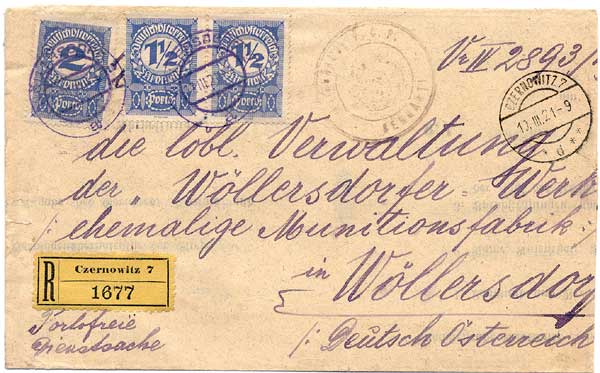 Deutschösterreich
2
Kronen
Porto
Deutschösterreich
1½
Kronen
Porto
Deutschösterreich
1½
Kronen
Porto
Vr IV 2893/
CZERNOWITZ 7
10.III.21-9
d
**
die löbl. Verwaltung
der „Wöllersdorfer-Werk
/: ehemalige Munitionsfabrik :/
in
Wöllersdor
/: Deutsch Österreich
R
Czernowitz 7
1677
Portofreie
Dienstsache